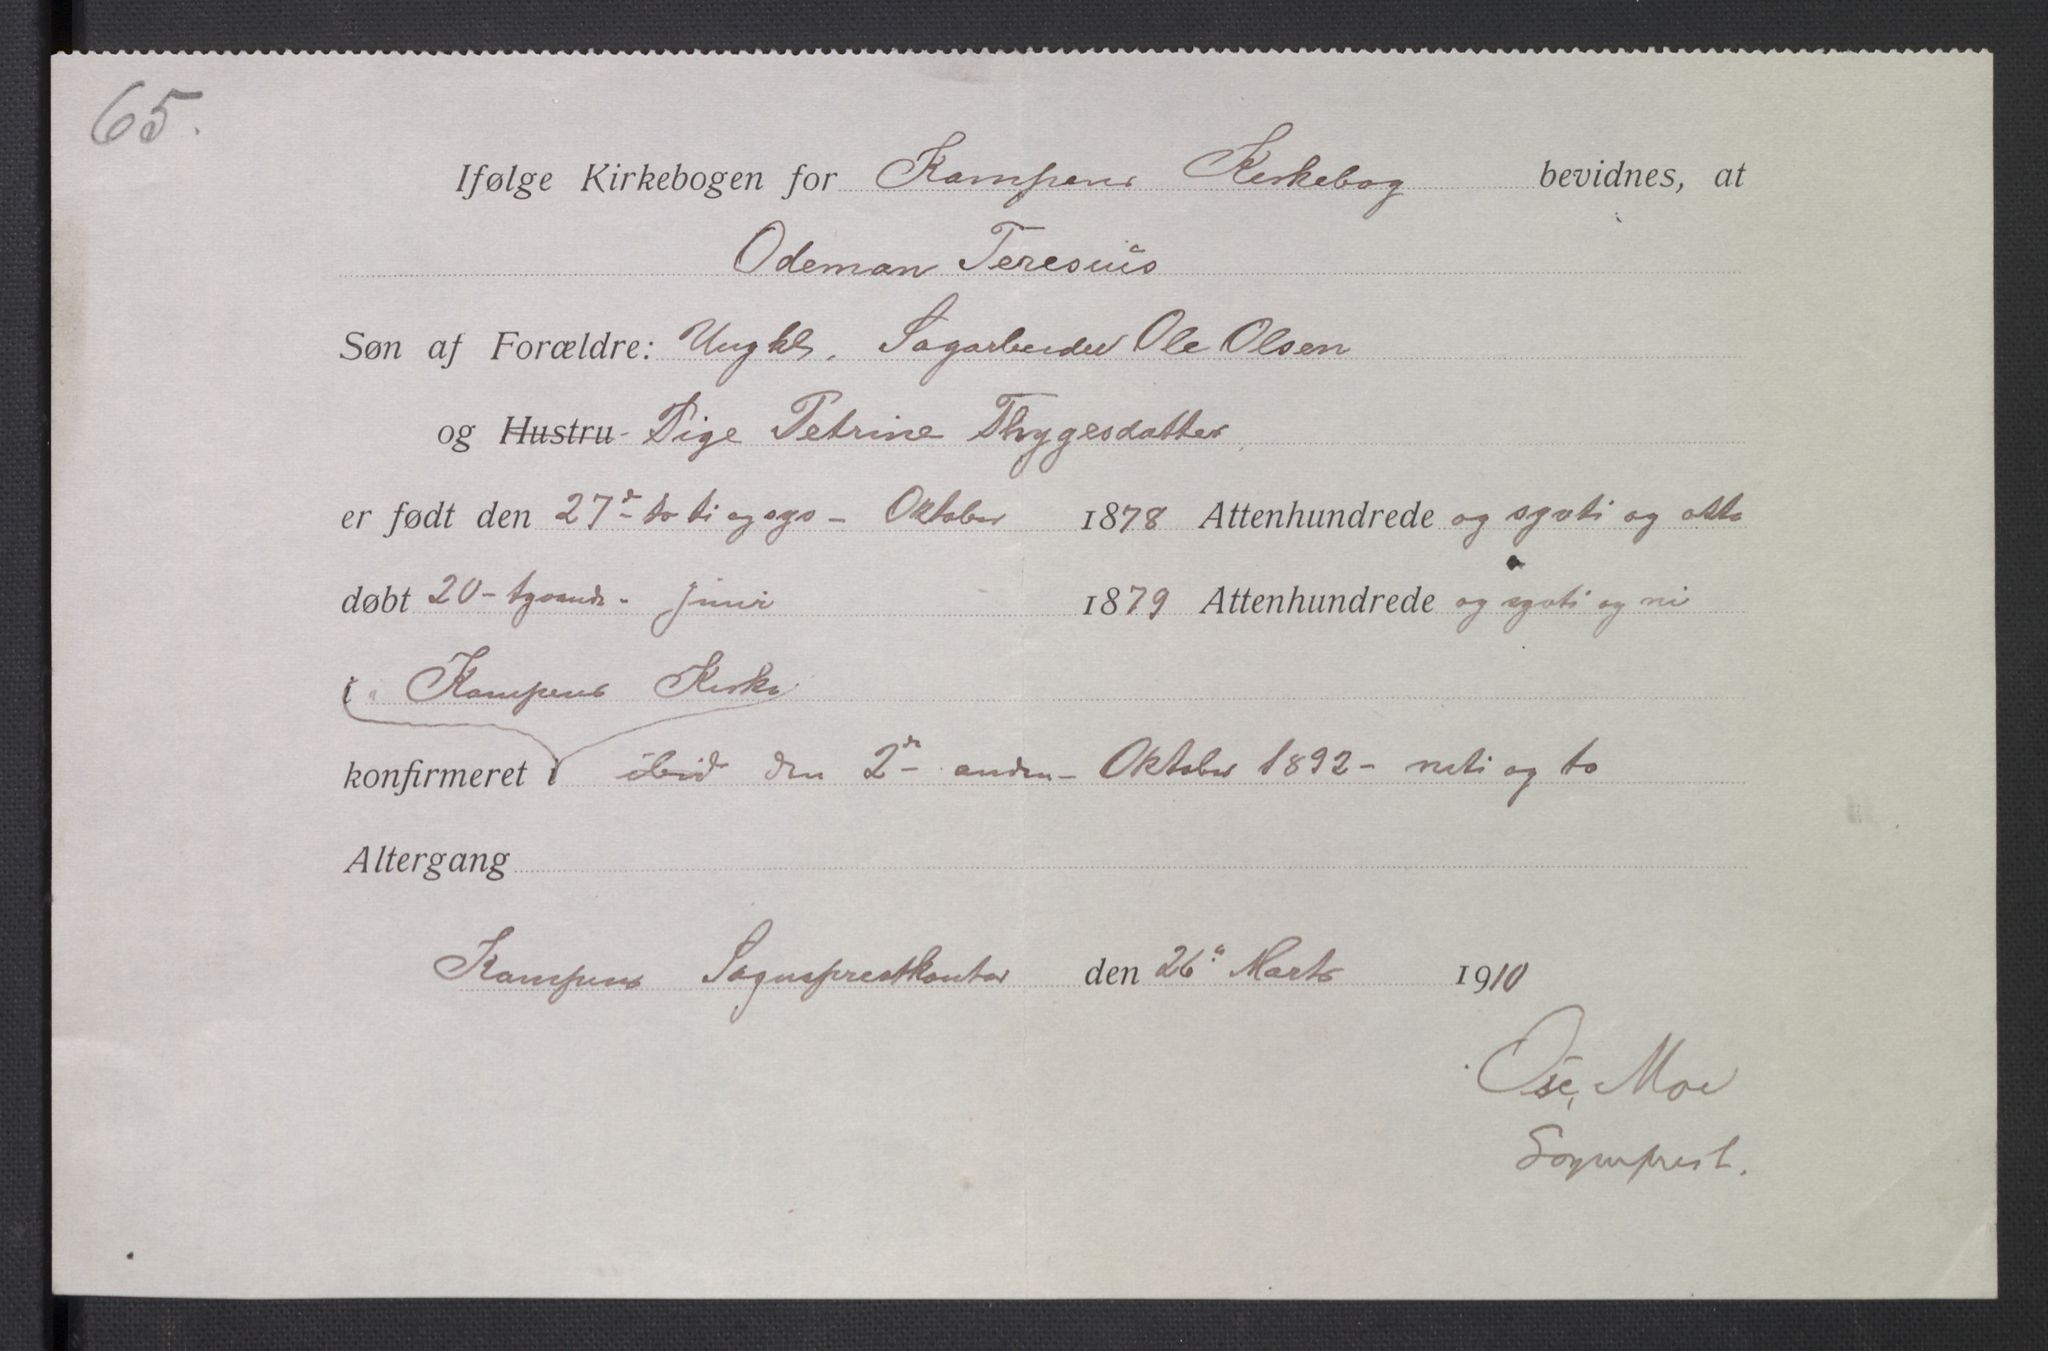 65.
Ifølge Kirkebogen for Kampens Kirkebog bevidnes, at
Odeman Teresius
Søn af Forældre: Ungkl. Sagarbeider Ole Olsen
og Hustru Pige Petrine Thygesdatter
er født den 27de to ti og syv - Oktober 1878 Attenhundrede og sytti og otte
døbt 20 - tyvende - juni 1879 Attenhundrede og sytti og ni
i Kampens Kirke
konfirmeret i ibid den 2den - anden - Oktober 1892 - niti og to
Altergang
Kampens Sognsprestkontor den 26de Marts 1910
Moe
Sogneprest.